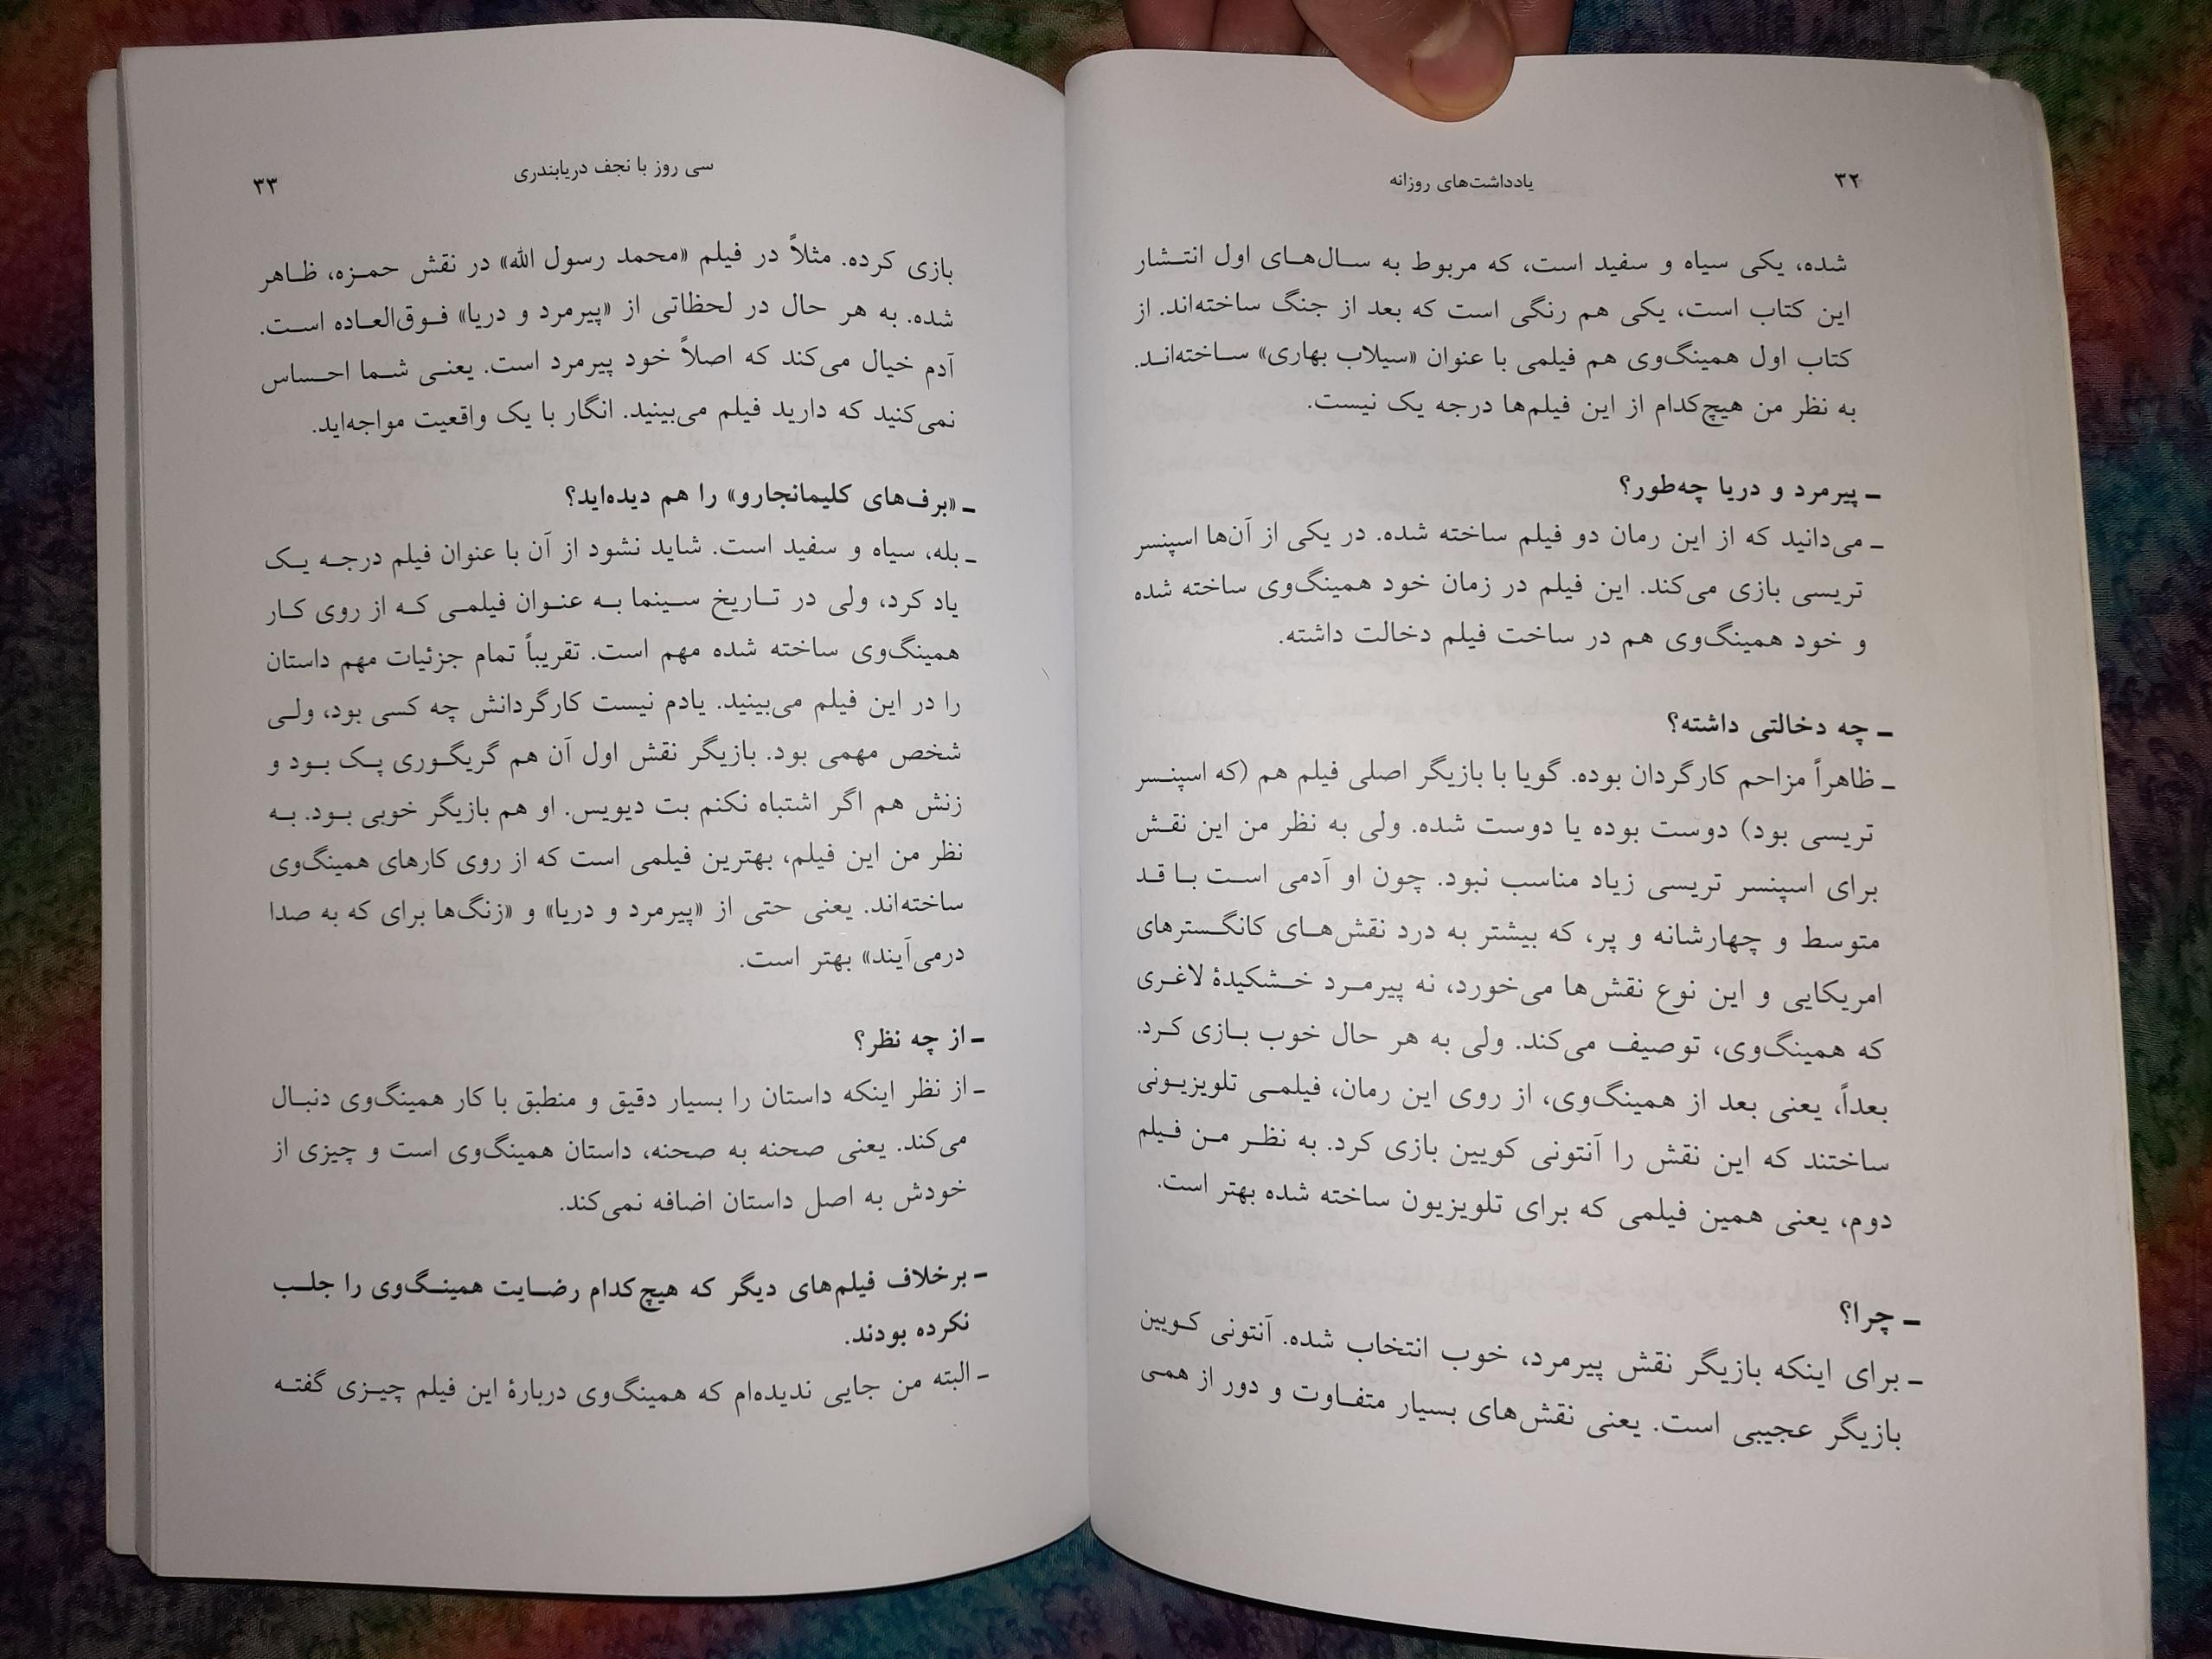 ۳۲
یادداشت‌های روزانه
شده، یکی سیاه و سفید است، که مربوط به سال‌های اول انتشار
این کتاب است، یکی هم رنگی است که بعد از جنگ ساخته‌اند. از
کتاب اول همینگ‌وی هم فیلمی با عنوان «سیلاب بهاری» ساخته‌اند.
به نظر من هیچ‌کدام از این فیلم‌ها درجه یک نیست.
ـ پیرمرد و دریا چه‌طور؟
ـ می‌دانید که از این رمان دو فیلم ساخته شده. در یکی از آن‌ها اسپنسر
تریسی بازی می‌کند. این فیلم در زمان خود همینگ‌وی ساخته شده
و خود همینگ‌وی هم در ساخت فیلم دخالت داشته.
ـ چه دخالتی داشته؟
ـ ظاهراً مزاحم کارگردان بوده. گویا با بازیگر اصلی فیلم هم (که اسپنسر
تریسی بود) دوست بوده یا دوست شده. ولی به نظر من این نقش
برای اسپنسر تریسی زیاد مناسب نبود. چون او آدمی است با قد
متوسط و چهارشانه و پر، که بیشتر به درد نقش‌های کانگسترهای
امریکایی و این نوع نقش‌ها می‌خورد، نه پیرمرد خشکیدۀ لاغری
که همینگ‌وی، توصیف می‌کند. ولی به هر حال خوب بازی کرد.
بعداً، یعنی بعد از همینگ‌وی، از روی این رمان، فیلمی تلویزیونی
ساختند که این نقش را آنتونی کویین بازی کرد. به نظر من فیلم
دوم، یعنی همین فیلمی که برای تلویزیون ساخته شده بهتر است.
ـ چرا؟
ـ برای اینکه بازیگر نقش پیرمرد، خوب انتخاب شده. آنتونی کویین
بازیگر عجیبی است. یعنی نقش‌های بسیار متفاوت و دور از همی
سی روز با نجف دریابندری
۳۳
بازی کرده. مثلاً در فیلم «محمد رسول الله» در نقش حمزه، ظاهر
شده. به هر حال در لحظاتی از «پیرمرد و دریا» فوق‌العاده است.
آدم خیال می‌کند که اصلاً خود پیرمرد است. یعنی شما احساس
نمی‌کنید که دارید فیلم می‌بینید. انگار با یک واقعیت مواجه‌اید.
ـ «برف‌های کلیمانجارو» را هم دیده‌اید؟
ـ بله، سیاه و سفید است. شاید نشود از آن با عنوان فیلم درجه یک
یاد کرد، ولی در تاریخ سینما به عنوان فیلمی که از روی کار
همینگ‌وی ساخته شده مهم است. تقریباً تمام جزئیات مهم داستان
را در این فیلم می‌بینید. یادم نیست کارگردانش چه کسی بود، ولی
شخص مهمی بود. بازیگر نقش اول آن هم گریگوری پک بود و
زنش هم اگر اشتباه نکنم بت دیویس. او هم بازیگر خوبی بود. به
نظر من این فیلم، بهترین فیلمی است که از روی کارهای همینگ‌وی
ساخته‌اند. یعنی حتی از «پیرمرد و دریا» و «زنگ‌ها برای که به صدا
درمی‌آیند» بهتر است.
ـ از چه نظر؟
ـ از نظر اینکه داستان را بسیار دقیق و منطبق با کار همینگ‌وی دنبال
می‌کند. یعنی صحنه به صحنه، داستان همینگ‌وی است و چیزی از
خودش به اصل داستان اضافه نمی‌کند.
ـ برخلاف فیلم‌های دیگر که هیچ‌کدام رضایت همینگ‌وی را جلب
نکرده بودند.
ـ البته من جایی ندیده‌ام که همینگ‌وی دربارۀ این فیلم چیزی گفته